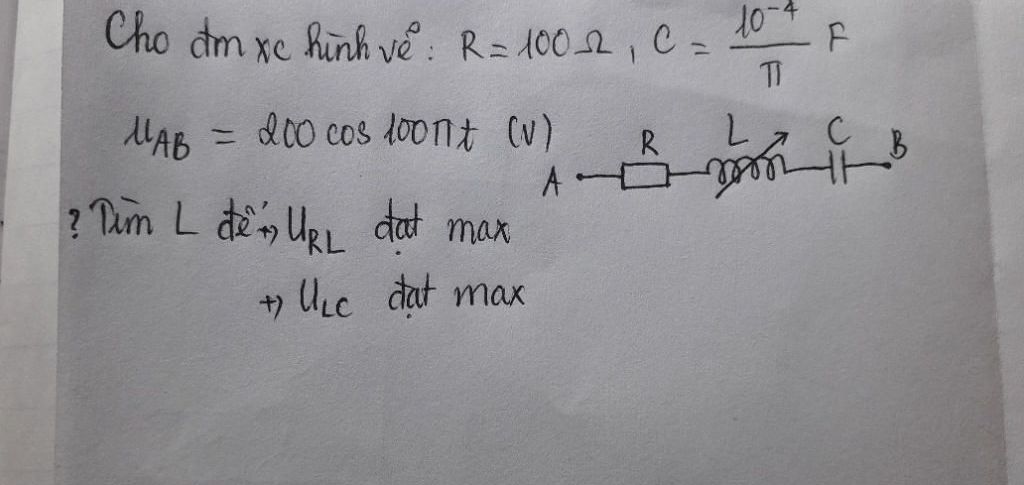 Cho đm xc hình vẽ : R = 100 Ω , C = 10⁻⁴/π F
u_AB = 200 cos 100πt (V)
R L C
A B
? Tìm L để +, U_RL đạt max
+, U_LC đạt max